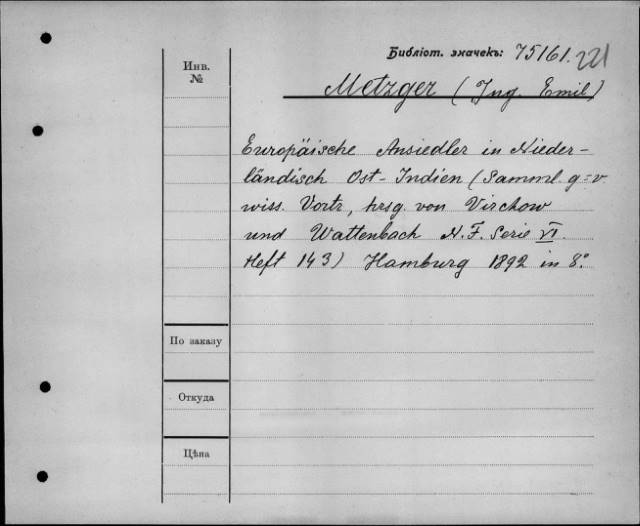 Библіот. значекъ: 75161. 221
Инв. №
Metzger (Ing. Emil)
Europäische Ansiedler in Nieder-
ländisch Ost-Indien (Samml. g=v.
wiss. Vortr., hrsg. von Virchow
und Wattenbach N. F. Serie VI.
Heft 143) Hamburg 1892 in 8°.
По заказу
Откуда
Цѣна